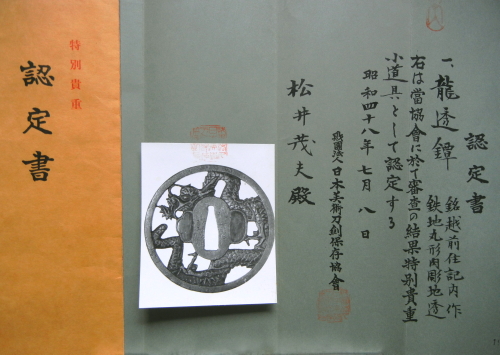 特別貴重
認定書
認定書
一、龍透鐔 銘越前住記内作
鉄地丸形肉彫地透
右は當協會に於て審査の結果特別貴重
小道具として認定する
昭和四十八年七月八日
財團法人日本美術刀剣保存協會
松井茂夫殿